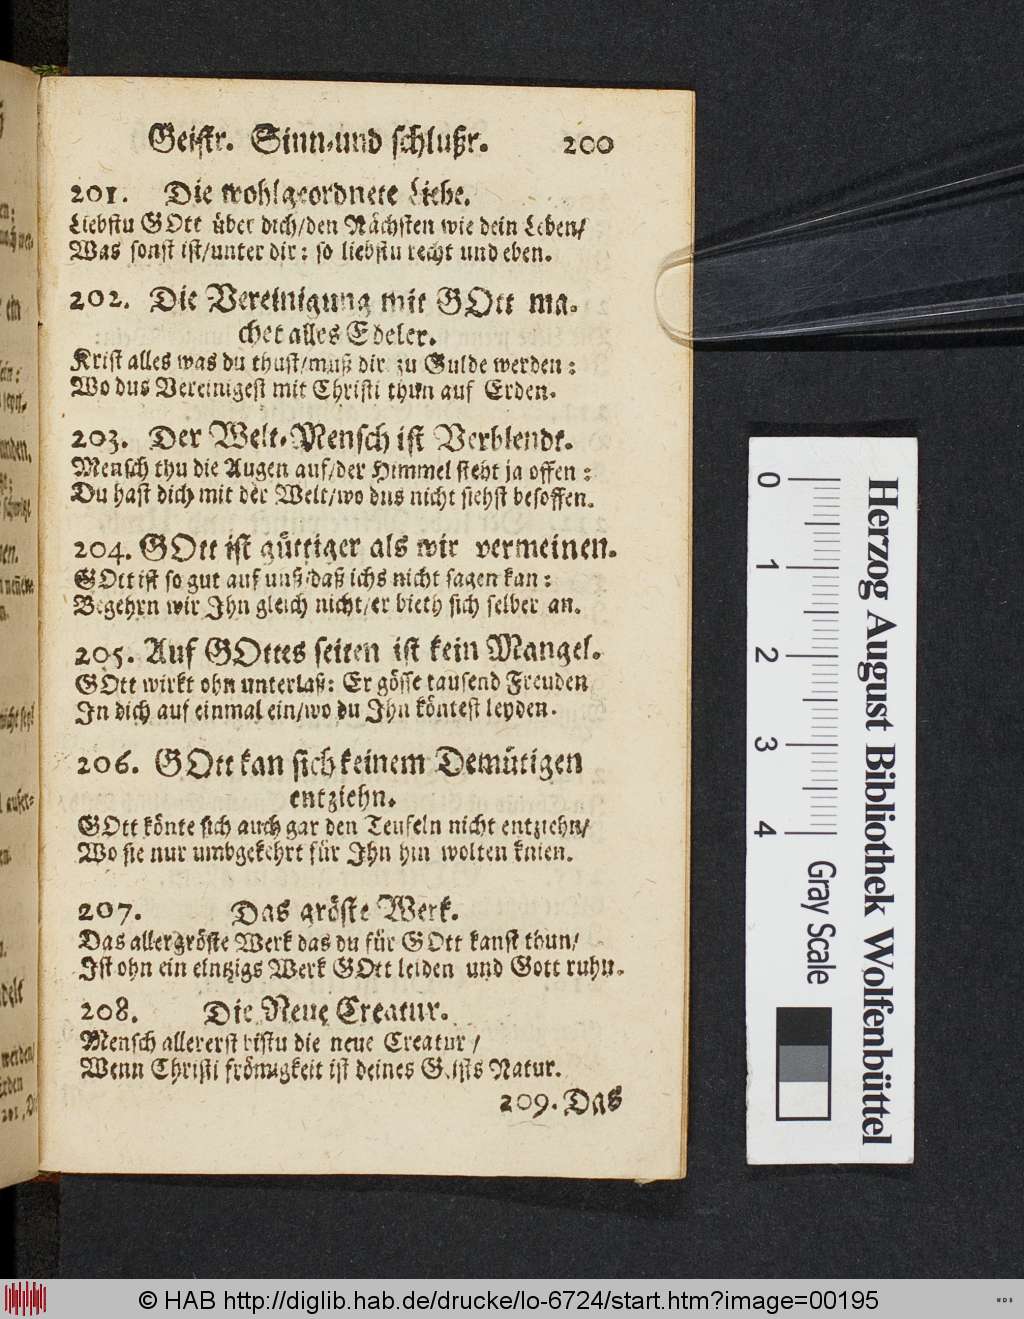 Geistr. Sinn-und schlußr. 200
201. Die wohlgeordnete Liebe.
Liebstu GOtt über dich/den Nächsten wie dein Leben/
Was sonst ist/unter dir: so liebstu recht und eben.
202. Die Vereinigung mit GOtt ma-
chet alles Edeler.
Krist alles was du thust/muß dir zu Gulde werden:
Wo dus Vereinigest mit Christi thun auf Erden.
203. Der Welt-Mensch ist Verblendt.
Mensch thu die Augen auf/der Himmel steht ja offen:
Du hast dich mit der Welt/wo dus nicht siehst besoffen.
204. GOtt ist güttiger als wir vermeinen.
GOtt ist so gut auf unß/daß ichs nicht sagen kan:
Begehrn wir Ihn gleich nicht/er bieth sich selber an.
205. Auf GOttes seiten ist kein Mangel.
GOtt wirkt ohn unterlaß: Er gösse tausend Freuden
In dich auf einmal ein/wo du Ihn köntest leyden.
206. GOtt kan sich keinem Demütigen
entziehn.
GOtt könte sich auch gar den Teufeln nicht entziehn/
Wo sie nur umbgekehrt für Ihn hin wolten knien.
207. Das gröste Werk.
Das allergröste Werk das du für GOtt kanst thun/
Ist ohn ein eintzigs Werk GOtt leiden und Gott ruhn.
208. Die Neue Creatur.
Mensch allererst bistu die neue Creatur/
Wenn Christi frömigkeit ist deines Geists Natur.
209. Das
0 1 2 3 4
Gray Scale
Herzog August Bibliothek Wolfenbüttel
© HAB http://diglib.hab.de/drucke/lo-6724/start.htm?image=00195